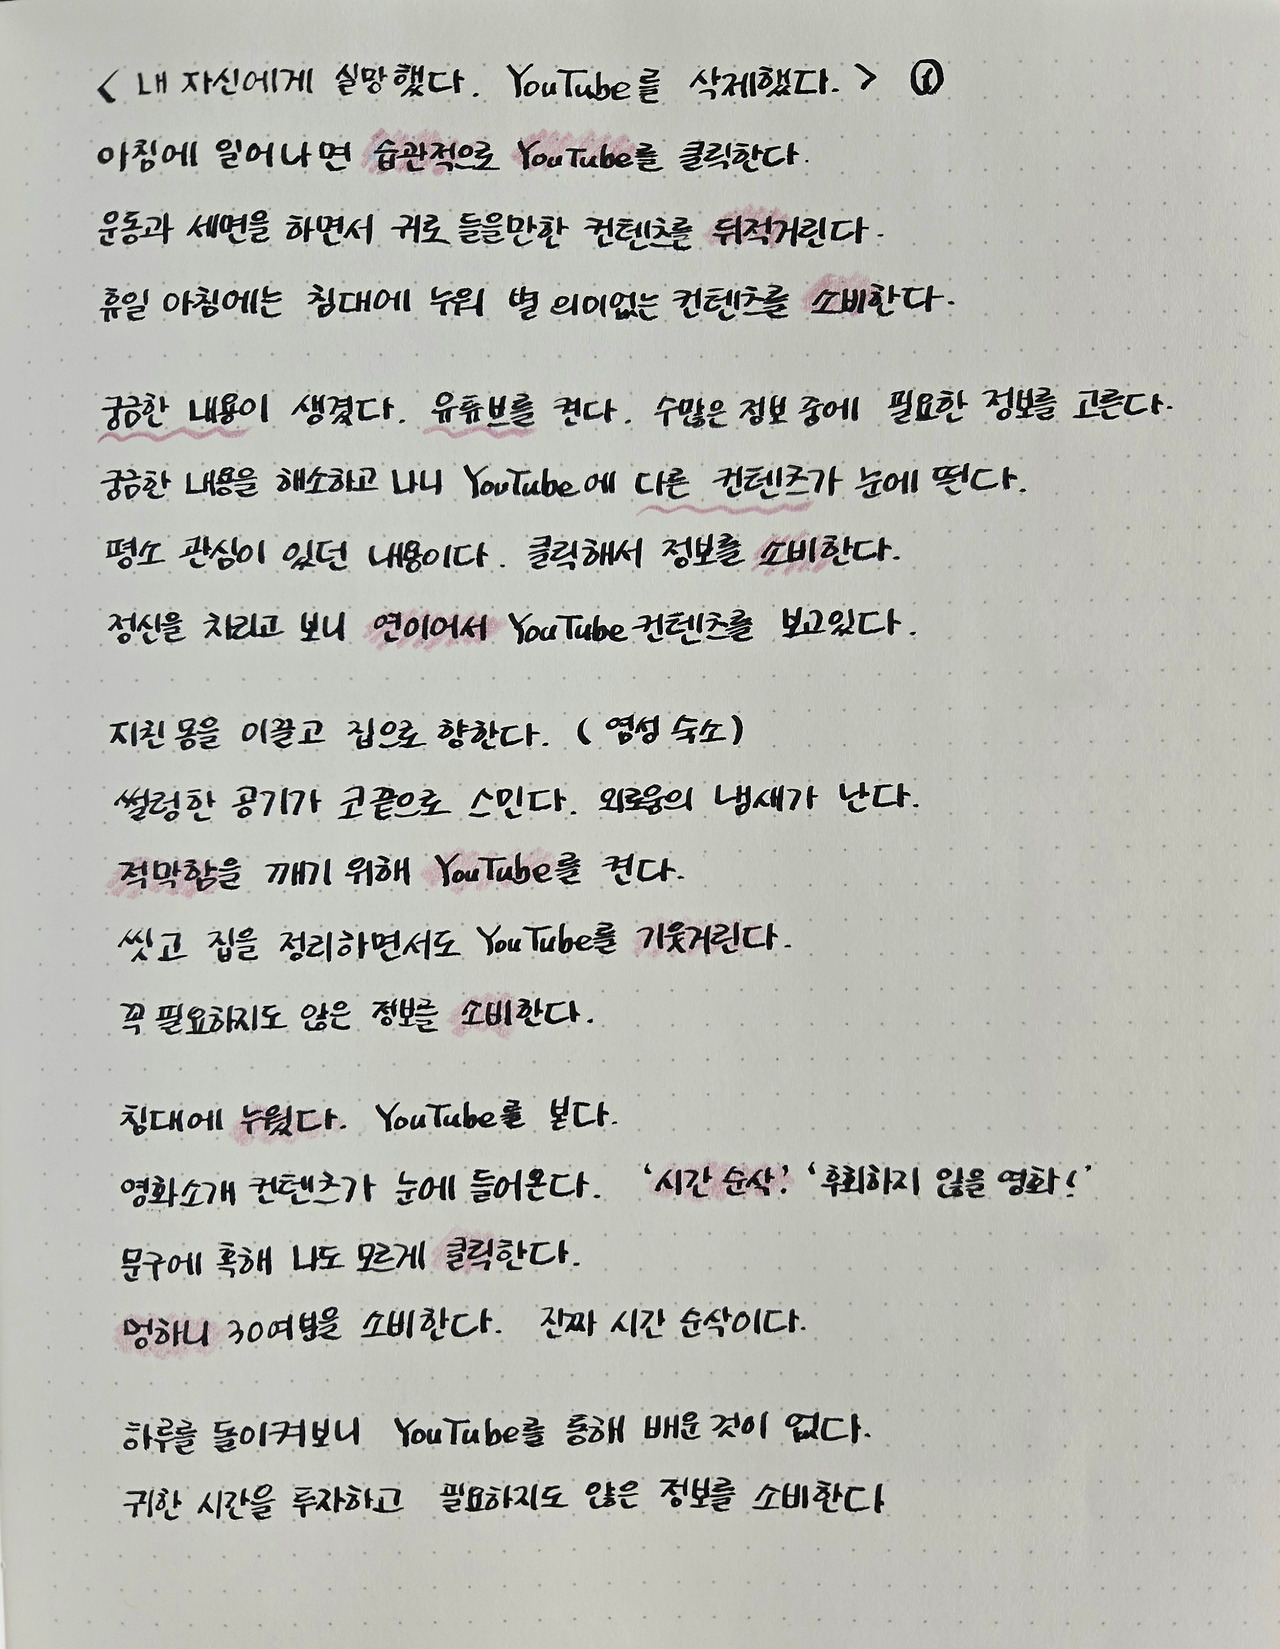 < 내 자신에게 실망했다. YouTube를 삭제했다. > ①
아침에 일어나면 습관적으로 YouTube를 클릭한다.
운동과 세면을 하면서 귀로 들을만한 컨텐츠를 뒤적거린다.
휴일 아침에는 침대에 누워 별 의미없는 컨텐츠를 소비한다.
궁금한 내용이 생겼다. 유튜브를 켠다. 수많은 정보 중에 필요한 정보를 고른다.
궁금한 내용을 해소하고 나니 YouTube에 다른 컨텐츠가 눈에 띤다.
평소 관심이 있던 내용이다. 클릭해서 정보를 소비한다.
정신을 차리고 보니 연이어서 YouTube 컨텐츠를 보고있다.
지친 몸을 이끌고 집으로 향한다. ( 염성 숙소 )
썰렁한 공기가 코끝으로 스민다. 외로움의 냄새가 난다.
적막함을 깨기 위해 YouTube를 켠다.
씻고 집을 정리하면서도 YouTube를 기웃거린다.
꼭 필요하지도 않은 정보를 소비한다.
침대에 누웠다. YouTube를 본다.
영화소개 컨텐츠가 눈에 들어온다. '시간 순삭!' '후회하지 않을 영화!'
문구에 혹해 나도 모르게 클릭한다.
멍하니 30여분을 소비한다. 진짜 시간 순삭이다.
하루를 돌이켜보니 YouTube를 통해 배운 것이 없다.
귀한 시간을 투자하고 필요하지도 않은 정보를 소비한다